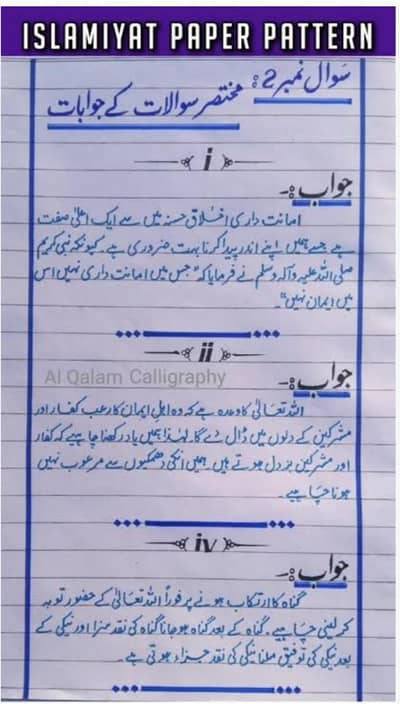 ISLAMIYAT PAPER PATTERN
سوال نمبر 2:
مختصر سوالات کے جوابات
i
جواب:۔
امانت داری اخلاق حسنہ میں سے ایک اعلیٰ صفت
ہے جسے ہمیں اپنے اندر پیدا کرنا بہت ضروری ہے۔ کیونکہ نبی کریم
صلی اللہ علیہ وآلہ وسلم نے فرمایا کہ "جس میں امانت داری نہیں اس
میں ایمان نہیں"۔
ii
جواب:۔
Al Qalam Calligraphy
اللہ تعالیٰ کا وعدہ ہے کہ وہ اہل ایمان کا رعب کفار اور
مشرکین کے دلوں میں ڈال دے گا۔ لہٰذا ہمیں یاد رکھنا چاہیے کہ کفار
اور مشرکین بزدل ہوتے ہیں۔ ہمیں انکی دھمکیوں سے مرعوب نہیں
ہونا چاہیے۔
iv
جواب:۔
گناہ کا ارتکاب ہونے پر فوراً اللہ تعالیٰ کے حضور توبہ
کر لینی چاہیے۔ گناہ کے بعد گناہ ہو جانا گناہ کی نقد سزا اور نیکی کے
بعد نیکی کی توفیق ملنا نیکی کی نقد جزاء ہوتی ہے۔